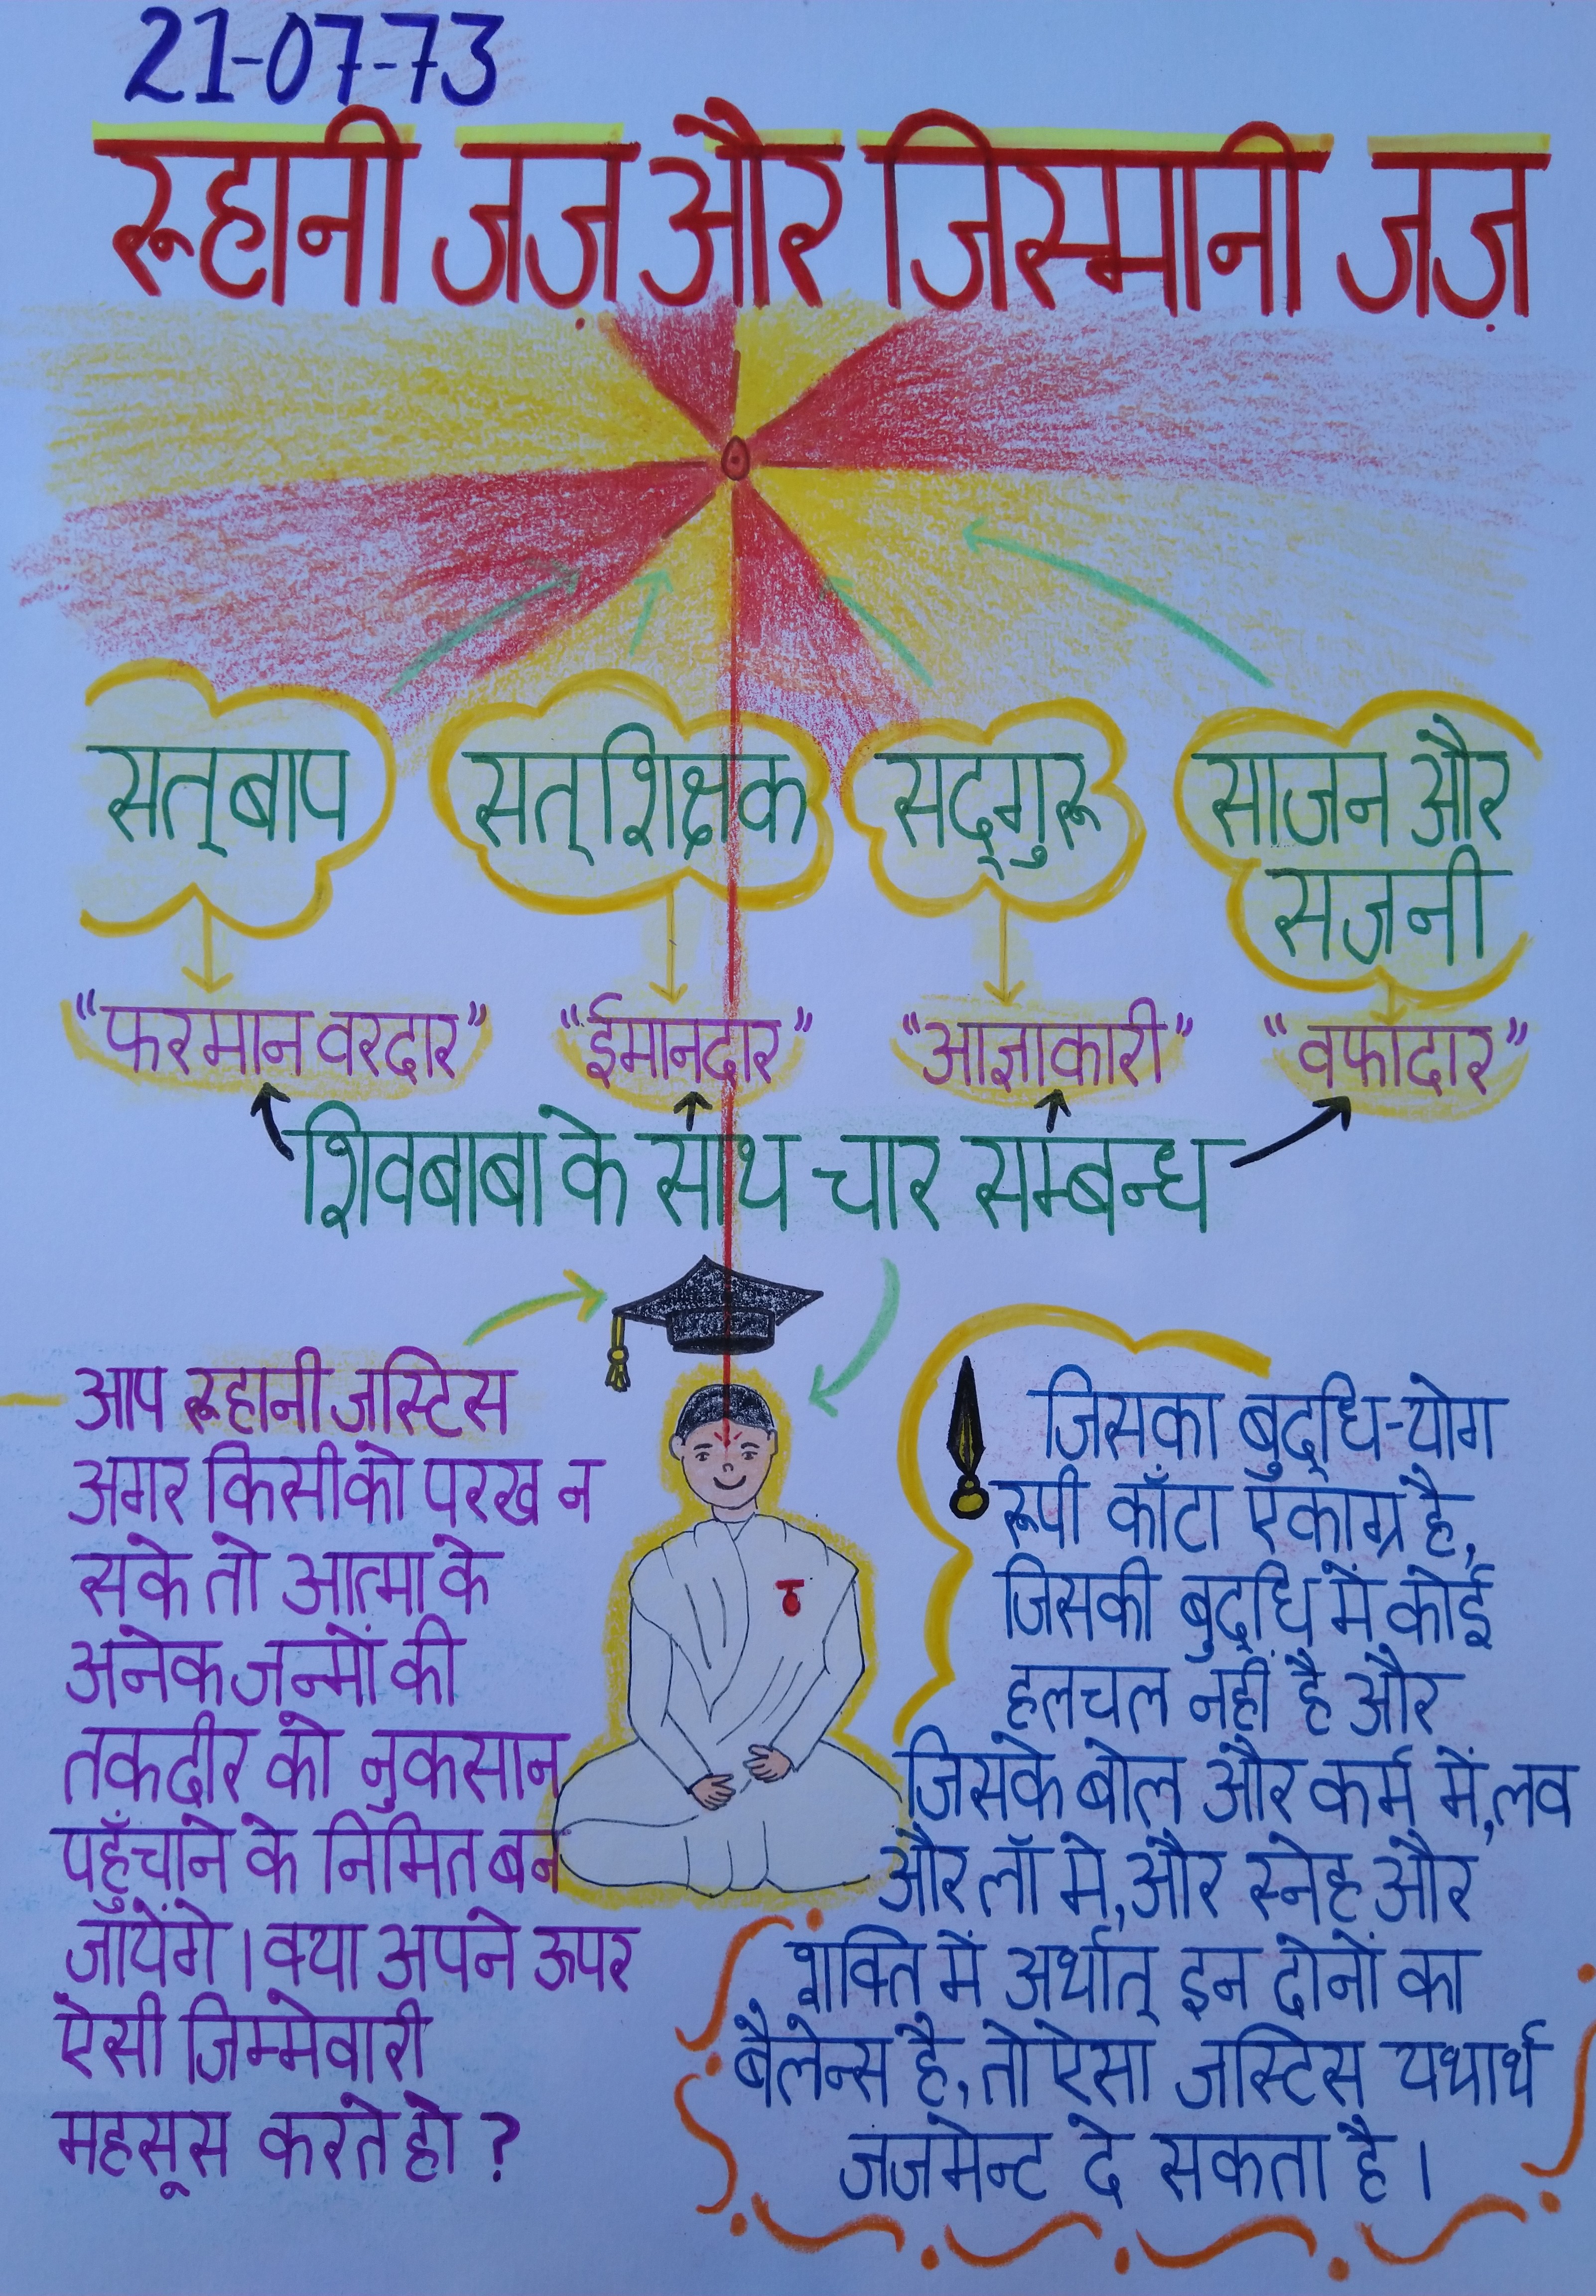 21-07-73
रूहानी जज़ और जिस्मानी जज़
सत् बाप
सत् शिक्षक
सद्गुरू
साजन और
सजनी
"फरमान वरदार"
"ईमानदार"
"आज्ञाकारी"
"वफादार"
शिवबाबा के साथ चार सम्बन्ध
आप रूहानी जस्टिस
अगर किसी को परख न
सके तो आत्मा के
अनेक जन्मों की
तकदीर को नुकसान
पहुँचाने के निमित बन
जायेंगे । क्या अपने ऊपर
ऐसी जिम्मेवारी
महसूस करते हो ?
जिसका बुद्धि-योग
रूपी काँटा एकाग्र है,
जिसकी बुद्धि में कोई
हलचल नहीं है और
जिसके बोल और कर्म में, लव
और लॉ मे, और स्नेह और
शक्ति में अर्थात् इन दोनों का
बैलेन्स है, तो ऐसा जस्टिस यथार्थ
जजमेन्ट दे सकता है ।